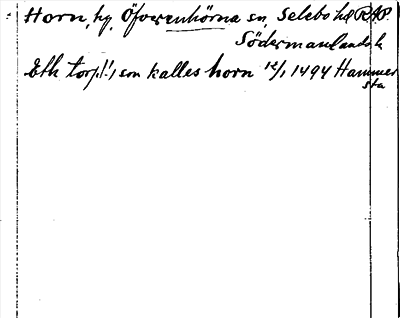 Horn, hg, Öfverenhörna sn, Selebo hd
Södermanlands l.
Eth torp(!), som kalles horn 12/1 1494 Hammer
sta